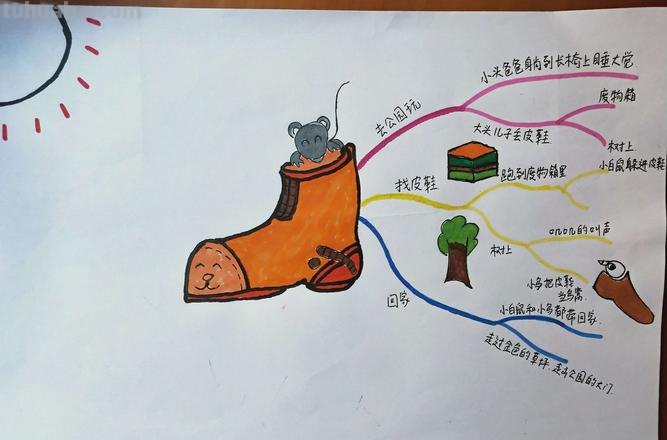 小头爸爸躺到长椅上睡大觉
去公园玩
废物箱
大头儿子丢皮鞋
树上
找皮鞋
跑到废物箱里
小白鼠躲进皮鞋
吖吖的叫声
树上
小鸟把皮鞋
当鸟窝
回家
小白鼠和小鸟都带回家
走过金色的草坪.走出公园的大门